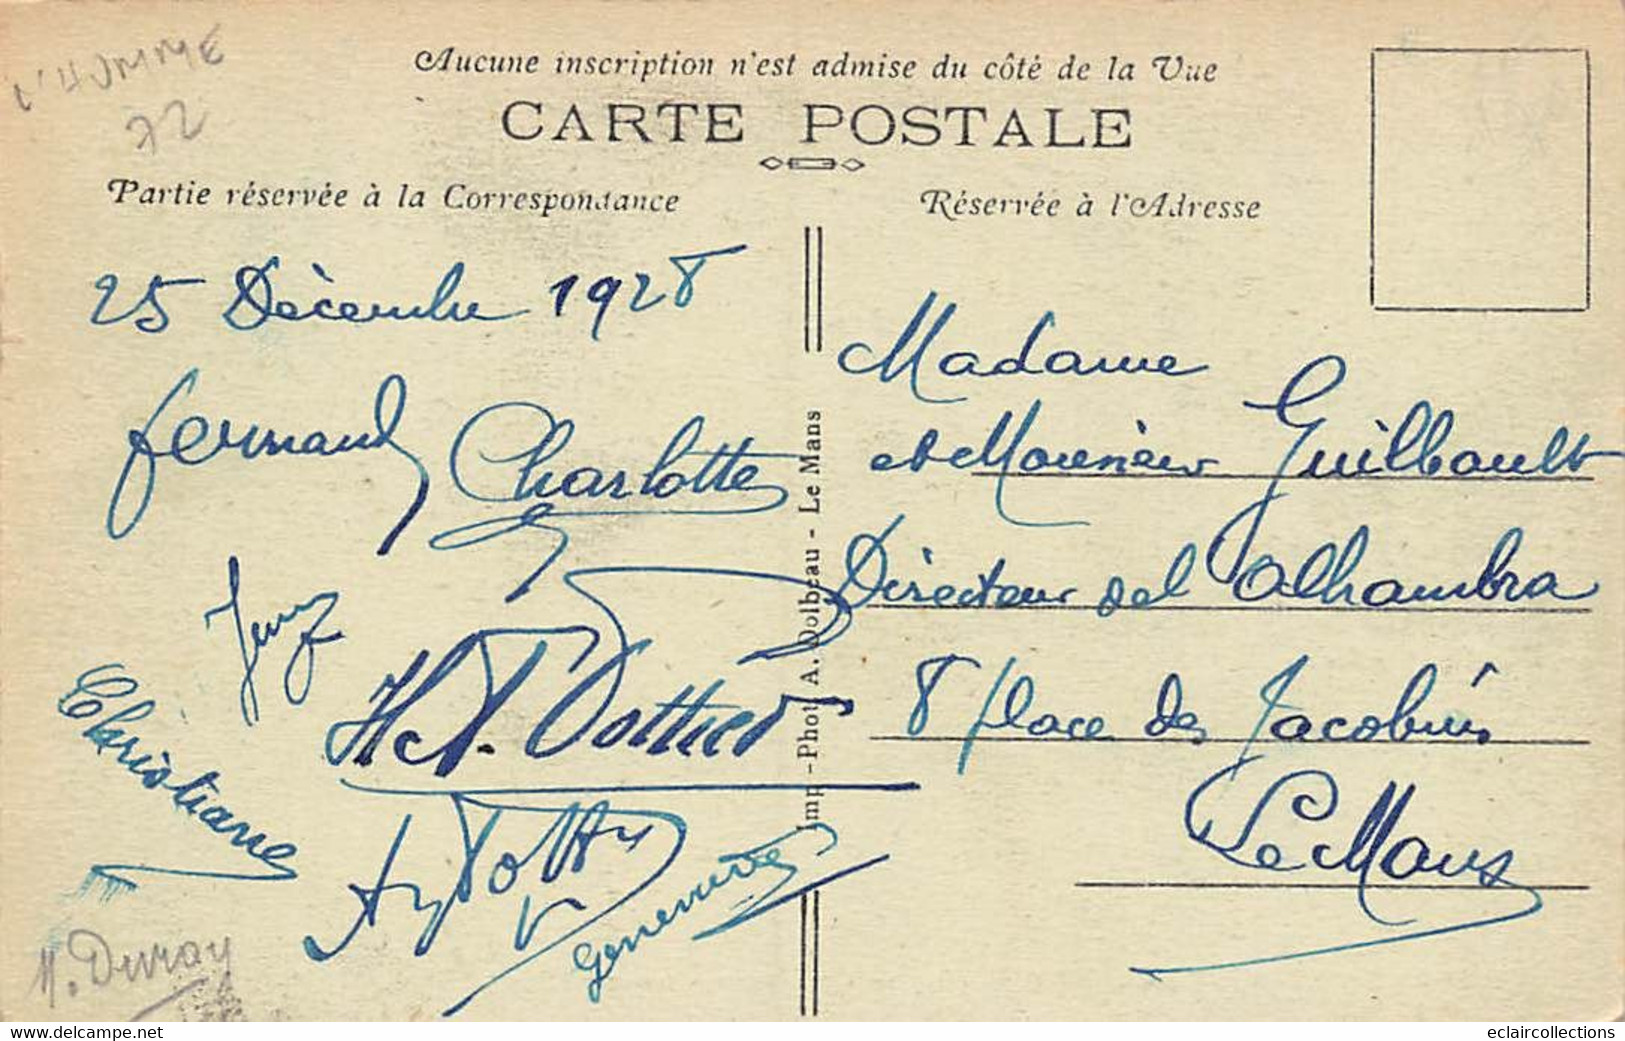 L'HOMME
72
Aucune inscription n'est admise du côté de la Vue
CARTE POSTALE
Partie réservée à la Correspondance
Réservée à l'Adresse
25 Décembre 1928
Fernand Charlotte
Christiane
Geneviève
M. Duray
Imp.-Phot. A. Dolbeau - Le Mans
Madame
et Monsieur Guilbault
Directeur de l'Alhambra
8 place des Jacobins
Le Mans
www.delcampe.net
eclaircollections